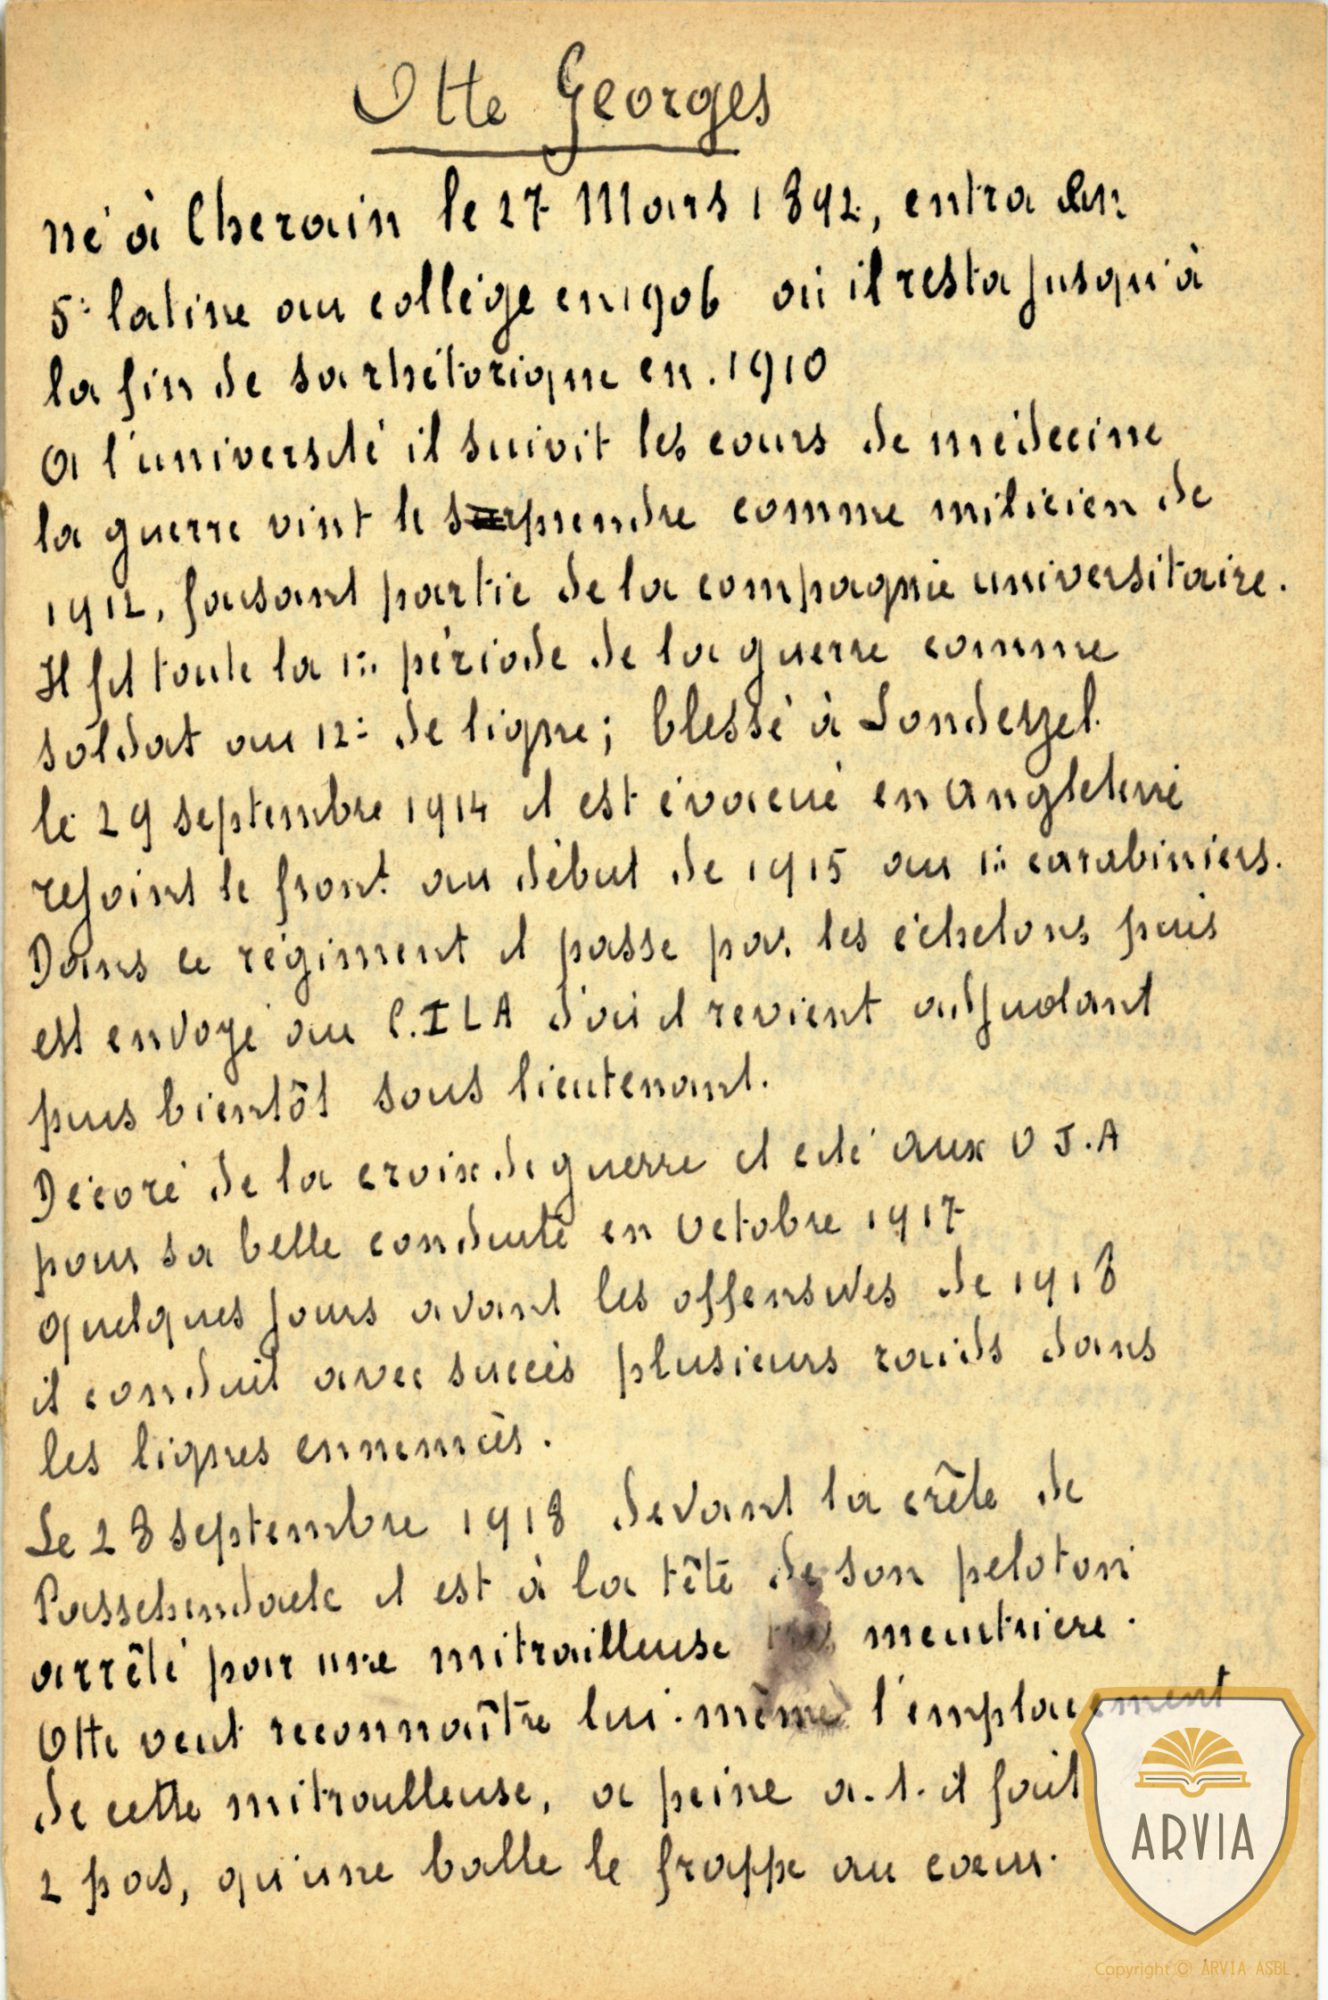 Otte Georges
né à Cherain le 27 Mars 1892, entra en
5e latine au collège en 1906 où il resta jusqu'à
la fin de sa rhétorique en 1910
A l'université il suivit les cours de médecine
la guerre vint le surprendre comme milicien de
1912, faisant partie de la compagnie universitaire.
Il fit toute la 1re période de la guerre comme
soldat au 12e de ligne; blessé à Londerzel.
le 29 septembre 1914 il est évacué en Angleterre
rejoint le front au début de 1915 au 1er carabiniers.
Dans ce régiment il passe par les échelons puis
est envoyé au C.I L A d'où il revient adjudant
puis bientôt sous lieutenant.
Décoré de la croix de guerre et cité aux O J.A
pour sa belle conduite en Octobre 1917
quelques jours avant les offensives de 1918
il conduit avec succès plusieurs raids dans
les lignes ennemies.
Le 28 septembre 1918 devant la crête de
Passchendaele il est à la tête de son peloton
arrêté par une mitrailleuse meurtrière.
Otte veut reconnaître lui-même l'emplacement
de cette mitrailleuse, a peine a-t-il fait
2 pas, qu'une balle le frappe au coeur.
ARVIA
Copyright © ARVIA ASBL